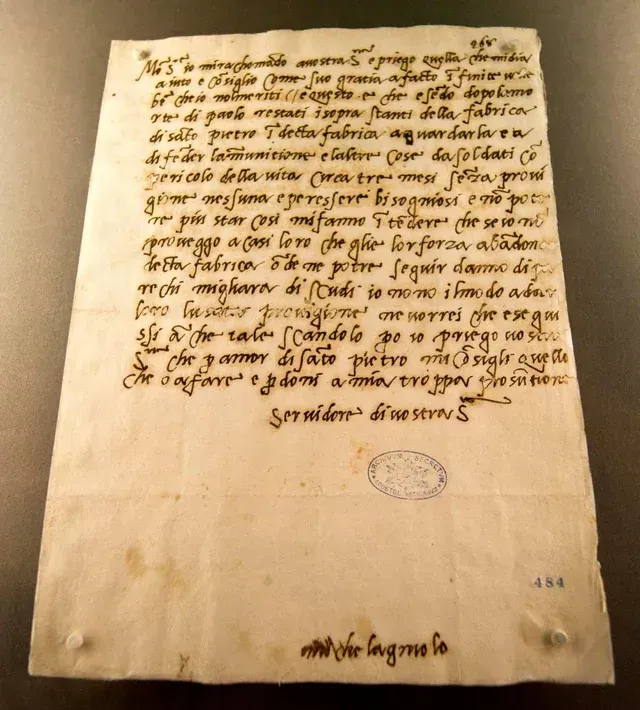 268
Mo S.re io mi rachomādo a vostra S.ria e priego quella che mi dia
aiuto e cōsiglio come suo gratia a facto ī finite
be che io nol meriti e questo e che esēdo dopo la mo
rte di paolo restati i sopra stanti della fabrica
di sāto pietro ī decta fabrica a guardarla e a
difēder la munitione e laltre cose da soldati cō
pericolo della vita circa tre mesi sēza provi
gione nessuna e per essere bisogniosi e nō pote
re piu star cosi mi fanno ītēdere che se io nō
proveggo a casi loro che glie lor forza abādonare
decta fabrica ōde ne potre seguir danno di pa
rechi migliara di scudi io nō o il modo a dar
loro provigione ne vorrei che e se gui
ssi āche tale scandolo po io priego vostra
S.ria che p amor di sāto pietro mi cōsigli quello
che o a fare e p doni a mia troppa prosūtione
Servidore di vostra S.ria
ARCHIVVM SECRETVM APOSTOL. VATICANVM
484
michelagniolo